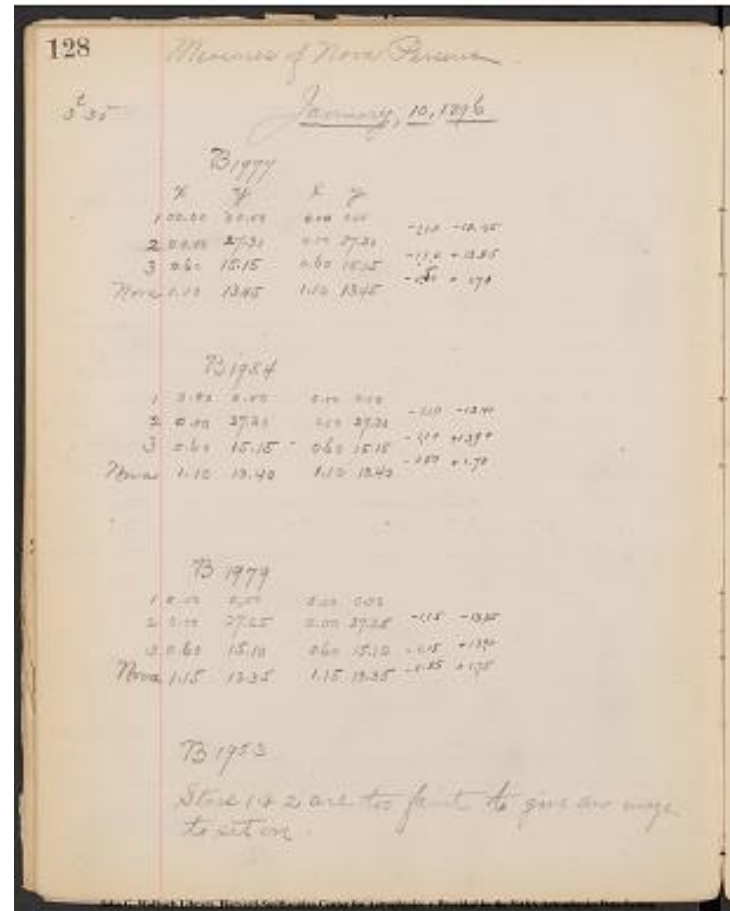 128
Measures of Nova Perseus
3 35
January, 10, 1896
B 1977
x y x y
1 00.00 00.00 0.00 0.00
2 00.00 27.30 0.00 27.30
3 0.60 15.15 0.60 15.15
Nova 1.10 13.45 1.10 13.45
B 1954
1 0.00 0.00 0.00 0.00
2 0.00 27.30 0.00 27.30
3 0.60 15.15 0.60 15.15
Nova 1.10 13.40 1.10 13.40
B 1979
1 0.00 0.00 0.00 0.00
2 0.00 27.25 0.00 27.25 -1.15
3 0.60 15.10 0.60 15.10 -1.15 +13.90
Nova 1.15 13.35 1.15 13.35 +1.75
B 1953
Stars 1 & 2 are too faint to give an image
to set on.